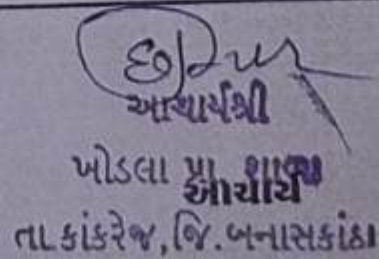 આચાર્યશ્રી
ખોડલા પ્રા. શાળા
આચાર્ય
તા.કાંકરેજ,જિ.બનાસકાંઠા